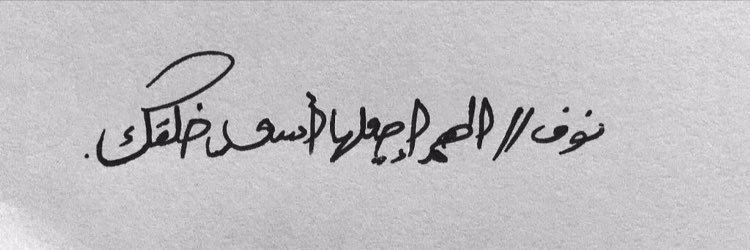 نوف // اللهم إجعلها أسعد خلقك.